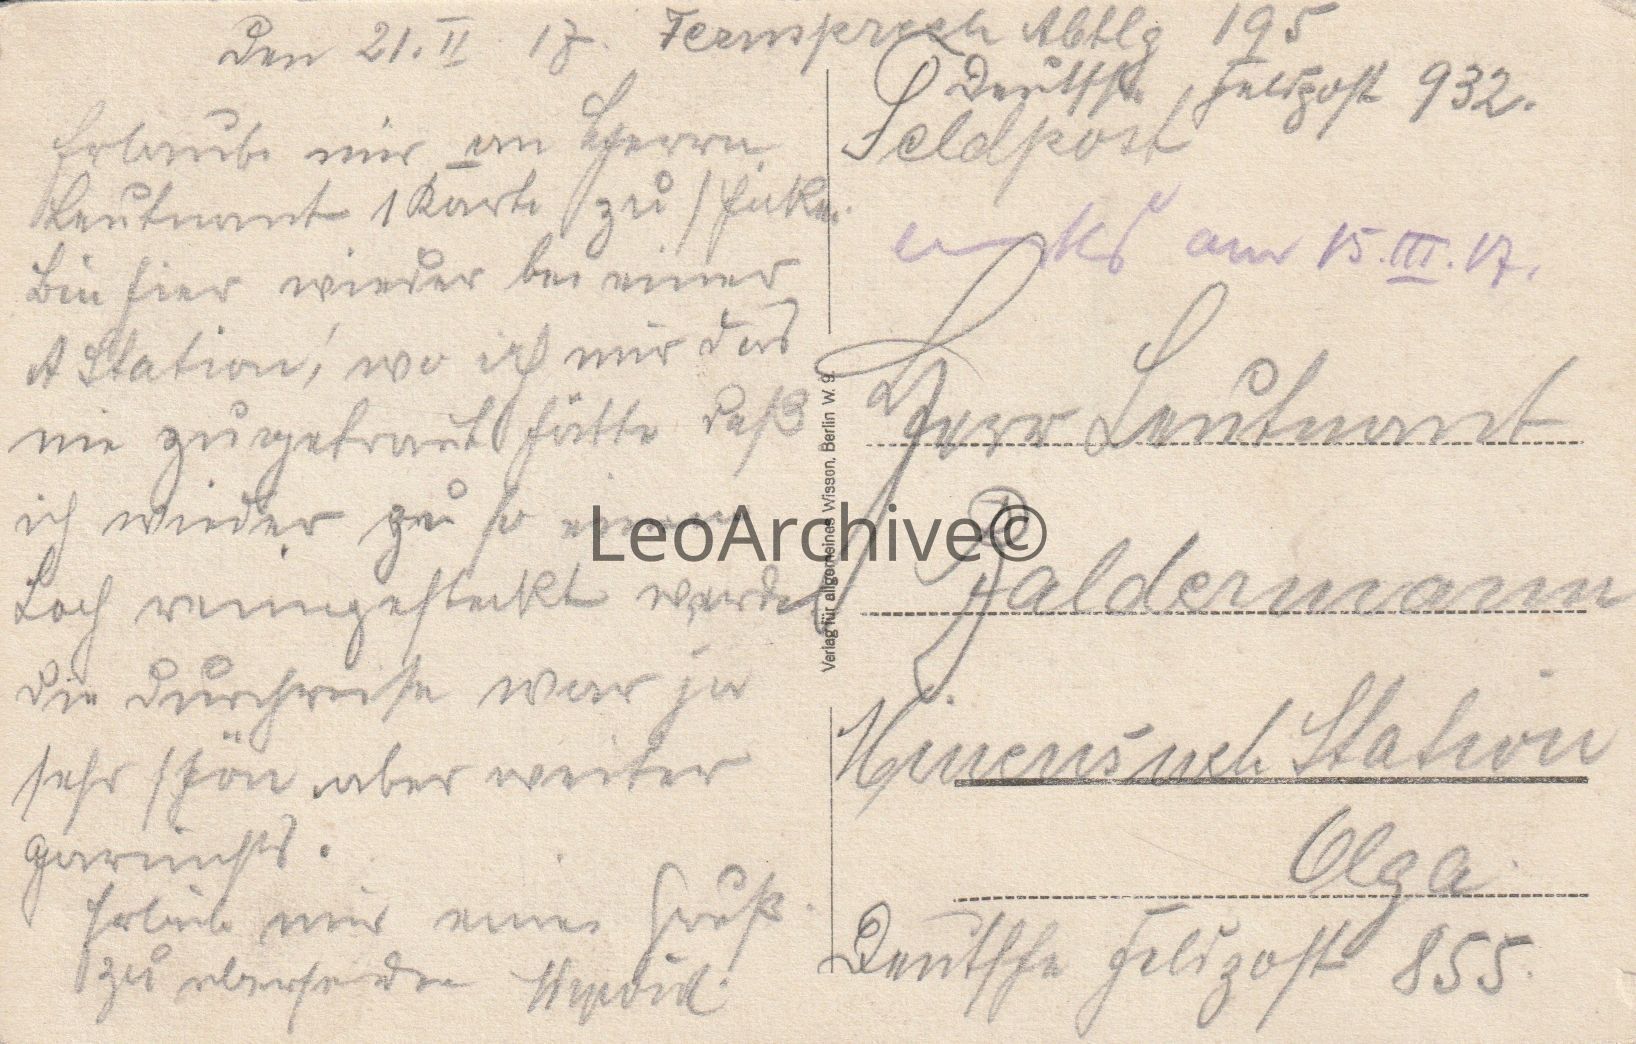 Den 21. II 17. Fernsprech Abtlg 195
Deutsche Feldpost 932.
Feldpost
Erlaube mir an Herrn
Leutnant 1 Karte zu schicken.
Bin hier wieder bei einer
A Station, wo ich mir das
nie zugetraut hätte daß
ich wieder zu so einem
Loch reingesteckt werde
die Durchreise war ja
sehr schön aber weiter
garnichts.
Erlaube mir einen Gruß
zu übersenden
am 15.III.17.
Herr Leutnant
Baldermann
Station
Olga
Deutsche Feldpost 855.
Verlag für allgemeines Wissen, Berlin W. 9.
LeoArchive©